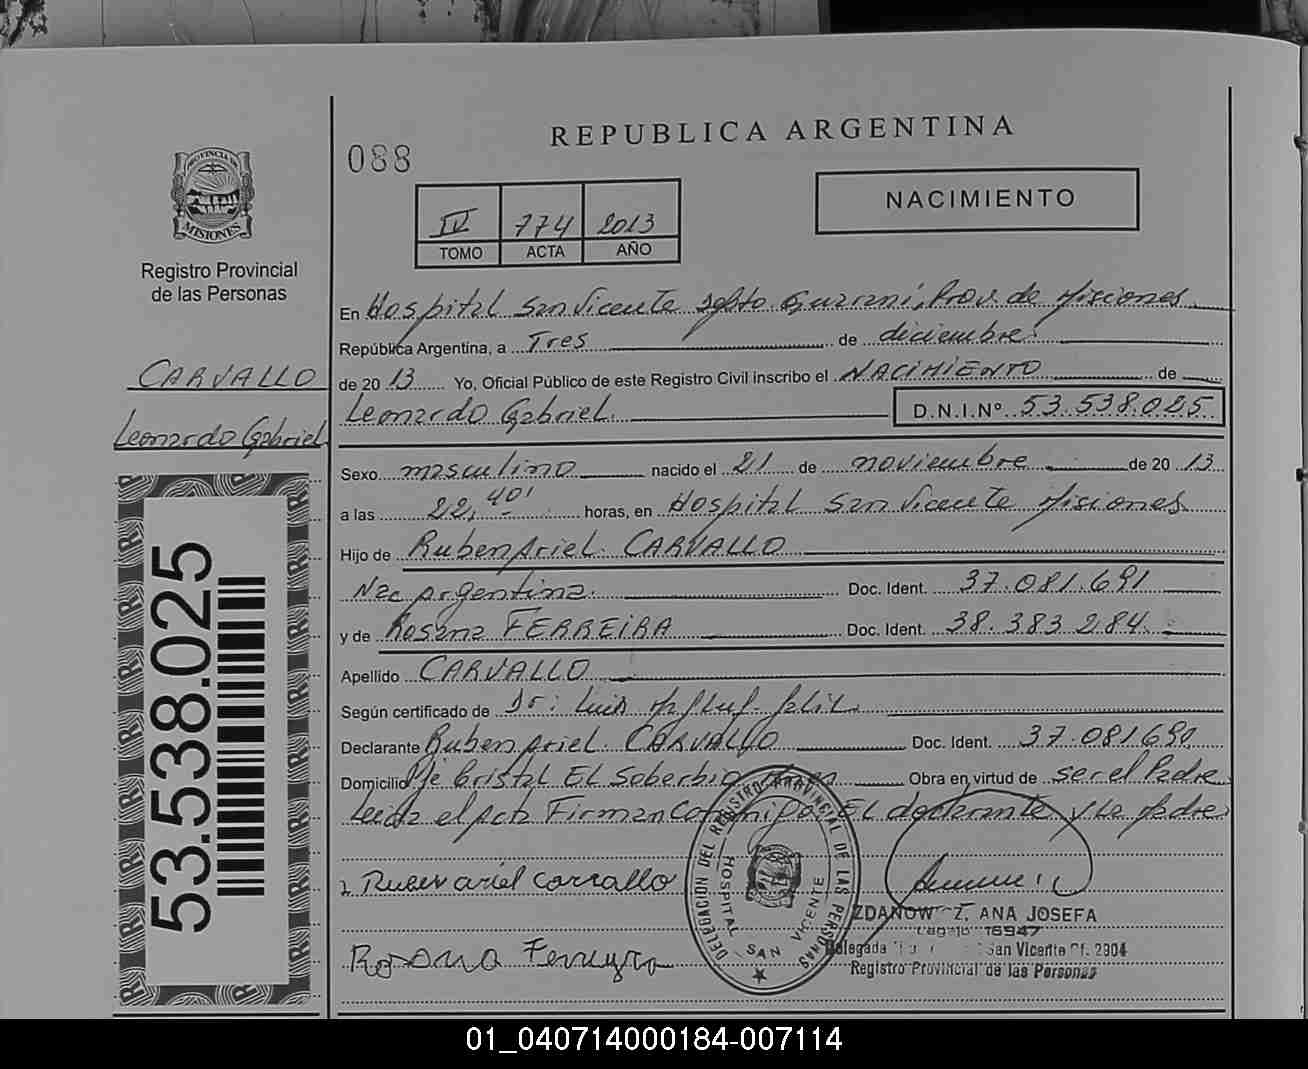 REPUBLICA ARGENTINA
088
NACIMIENTO
IV 774 2013
TOMO ACTA AÑO
PROVINCIA DE
MISIONES
Registro Provincial
de las Personas
CARVALLO
Leonardo Gabriel
53.538.025
En Hospital San Vicente Dpto. Guarani, Prov. de Misiones
República Argentina, a Tres de diciembre
de 20 13 Yo, Oficial Público de este Registro Civil inscribo el NACIMIENTO de
Leonardo Gabriel. D.N.I.Nº 53.538.025
Sexo masculino nacido el 21 de noviembre de 20 13
a las 22,40' horas, en Hospital San Vicente Misiones
Hijo de Ruben Ariel CARVALLO
Nac Argentina. Doc. Ident. 37.081.691
y de Rosana FERREIRA Doc. Ident. 38.383.284
Apellido CARVALLO
Según certificado de Dr: Luis
Declarante Ruben Ariel CARVALLO Doc. Ident. 37.081.690
Domicilio Pje Cristal El Soberbio Obra en virtud de ser el Padre
Leida el Acta Firman Conmigo El declarante y La Madre
Ruben ariel carvallo
Rosana Ferreyra
DELEGACION DEL REGISTRO PROVINCIAL DE LAS PERSONAS
HOSPITAL SAN VICENTE
ANA JOSEFA
Legajo 16947
Delegada San Vicente Of. 2904
Registro Provincial de las Personas
01_040714000184-007114